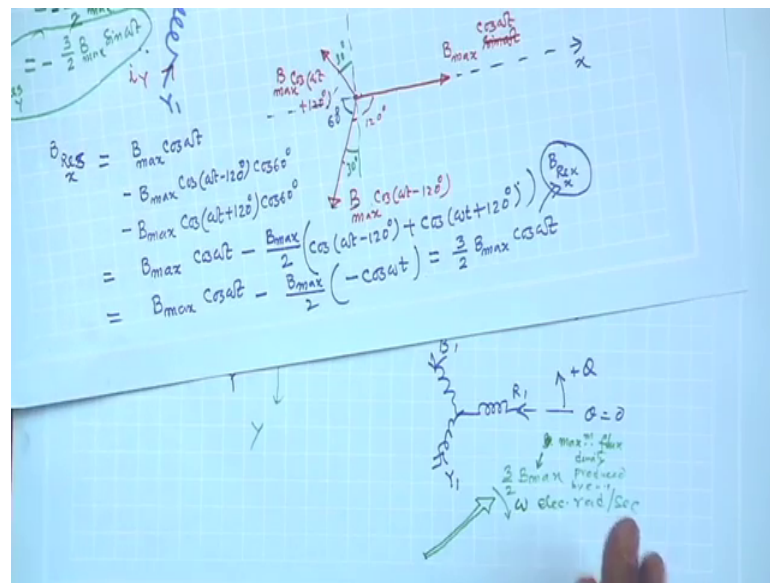 2 max
= - 3/2 B max Sin ωt
iY
Y1
B max Cos(ωt +120°)
30°
60°
120°
30°
B max Cos ωt
x
B max Cos(ωt-120°)
B Res x = B max Cos ωt
- B max Cos(ωt-120°) Cos60°
- B max Cos(ωt+120°) Cos60°
= B max Cos ωt - B max/2 (Cos(ωt-120°) + Cos(ωt+120°))
B Res x
= B max Cos ωt - B max/2 (-cos ωt) = 3/2 B max Cos ωt
Y
B1
R1
Y1
+θ
θ=0
max^m flux
density
produced
3/2 B max
ω elec. rad/sec